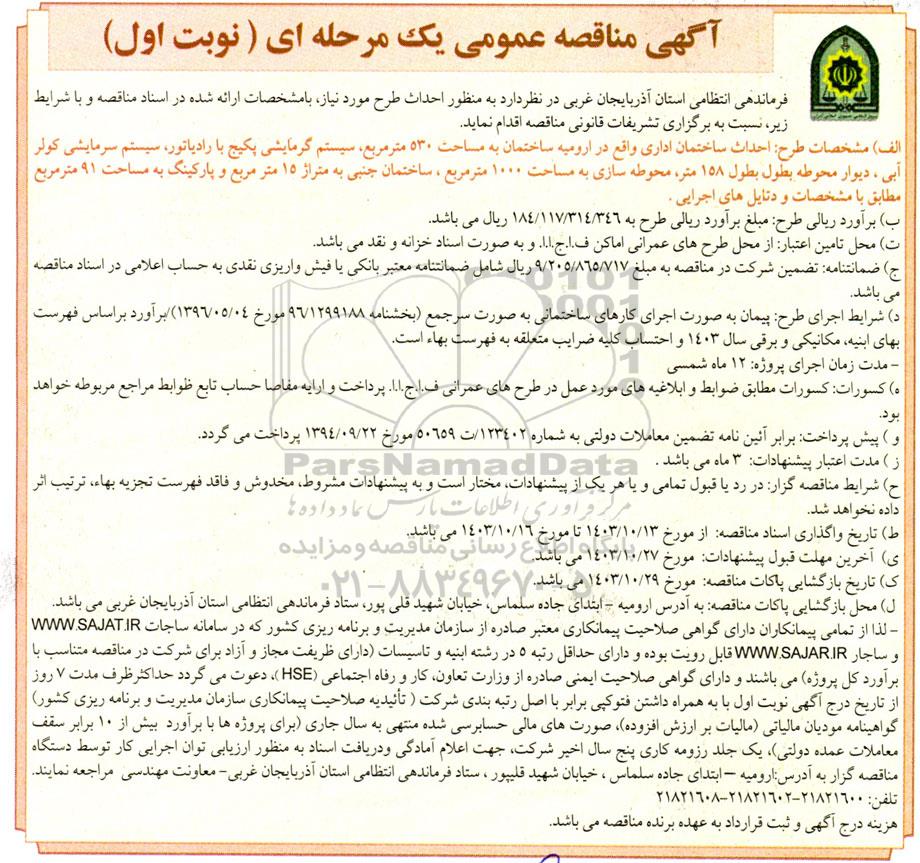 آگهی مناقصه عمومی یک مرحله ای ( نوبت اول)
فرماندهی انتظامی استان آذربایجان غربی در نظردارد به منظور احداث طرح مورد نیاز، بامشخصات ارائه شده در اسناد مناقصه و با شرایط
زیر، نسبت به برگزاری تشریفات قانونی مناقصه اقدام نماید.
الف) مشخصات طرح: احداث ساختمان اداری واقع در ارومیه ساختمان به مساحت ۵۳۰ مترمربع، سیستم گرمایشی پکیج با رادیاتور، سیستم سرمایشی کولر
آبی ، دیوار محوطه بطول بطول ۱۵۸ متر، محوطه سازی به مساحت ۱۰۰۰ مترمربع ، ساختمان جنبی به متراژ ۱۵ متر مربع و پارکینگ به مساحت ۹۱ مترمربع
مطابق با مشخصات و دتایل های اجرایی .
ب) برآورد ریالی طرح: مبلغ برآورد ریالی طرح به ۱۸۴/۱۱۷/۳۱۴/۳۴۶ ریال می باشد.
ت) محل تامین اعتبار: از محل طرح های عمرانی اماکن ف.ا.ج.ا.ا. و به صورت اسناد خزانه و نقد می باشد.
ج) ضمانتنامه: تضمین شرکت در مناقصه به مبلغ ۹/۲۰۵/۸۶۵/۷۱۷ ریال شامل ضمانتنامه معتبر بانکی یا فیش واریزی نقدی به حساب اعلامی در اسناد مناقصه
می باشد.
د) شرایط اجرای طرح: پیمان به صورت اجرای کارهای ساختمانی به صورت سرجمع (بخشنامه ۹۶/۱۲۹۹۱۸۸ مورخ ۱۳۹۶/۰۵/۰۴)/برآورد براساس فهرست
بهای ابنیه، مکانیکی و برقی سال ۱۴۰۳ و احتساب کلیه ضرایب متعلقه به فهرست بهاء است.
- مدت زمان اجرای پروژه: ۱۲ ماه شمسی
ه) کسورات: کسورات مطابق ضوابط و ابلاغیه های مورد عمل در طرح های عمرانی ف.ا.ج.ا.ا. پرداخت و ارایه مفاصا حساب تابع ظوابط مراجع مربوطه خواهد
بود.
و ) پیش پرداخت: برابر آئین نامه تضمین معاملات دولتی به شماره ۱۲۳۴۰۲/ت ۵۰۶۵۹ مورخ ۱۳۹۴/۰۹/۲۲ پرداخت می گردد.
ز ) مدت اعتبار پیشنهادات: ۳ ماه می باشد .
ح) شرایط مناقصه گزار: در رد یا قبول تمامی و یا هر یک از پیشنهادات، مختار است و به پیشنهادات مشروط، مخدوش و فاقد فهرست تجزیه بهاء، ترتیب اثر
داده نخواهد شد.
ط) تاریخ واگذاری اسناد مناقصه: از مورخ ۱۴۰۳/۱۰/۱۳ تا مورخ ۱۴۰۳/۱۰/۱۶ می باشد.
ی) آخرین مهلت قبول پیشنهادات: مورخ ۱۴۰۳/۱۰/۲۷ می باشد.
ک) تاریخ بازگشایی پاکات مناقصه: مورخ ۱۴۰۳/۱۰/۲۹ می باشد.
ل) محل بازگشایی پاکات مناقصه: به آدرس ارومیه –ابتدای جاده سلماس، خیابان شهید قلی پور، ستاد فرماندهی انتظامی استان آذربایجان غربی می باشد.
- لذا از تمامی پیمانکاران دارای گواهی صلاحیت پیمانکاری معتبر صادره از سازمان مدیریت و برنامه ریزی کشور که در سامانه ساجات WWW.SAJAT.IR
و ساجار WWW.SAJAR.IR قابل رویت بوده و دارای حداقل رتبه ۵ در رشته ابنیه و تاسیسات (دارای ظریفت مجاز و آزاد برای شرکت در مناقصه متناسب با
برآورد کل پروژه) می باشند و دارای گواهی صلاحیت ایمنی صادره از وزارت تعاون، کار و رفاه اجتماعی (HSE)، دعوت می گردد حداکثرظرف مدت ۷ روز
از تاریخ درج آگهی نوبت اول با به همراه داشتن فتوکپی برابر با اصل رتبه بندی شرکت ( تأئیدیه صلاحیت پیمانکاری سازمان مدیریت و برنامه ریزی کشور)
گواهینامه مودیان مالیاتی (مالیات بر ارزش افزوده)، صورت های مالی حسابرسی شده منتهی به سال جاری (برای پروژه ها با برآورد بیش از ۱۰ برابر سقف
معاملات عمده دولتی)، یک جلد رزومه کاری پنج سال اخیر شرکت، جهت اعلام آمادگی ودریافت اسناد به منظور ارزیابی توان اجرایی کار توسط دستگاه
مناقصه گزار به آدرس:ارومیه –ابتدای جاده سلماس ، خیابان شهید قلیپور ، ستاد فرماندهی انتظامی استان آذربایجان غربی- معاونت مهندسی مراجعه نمایند.
تلفن: ۲۱۸۲۱۶۰۰-۲۱۸۲۱۶۰۲-۲۱۸۲۱۶۰۸
هزینه درج آگهی و ثبت قرارداد به عهده برنده مناقصه می باشد.
ParsNamadData
مرکز فرآوری اطلاعات پارس نماد داده ها
پایگاه اطلاع رسانی مناقصه و مزایده
۰۲۱-۸۸۳۴۹۶۷۰-۵